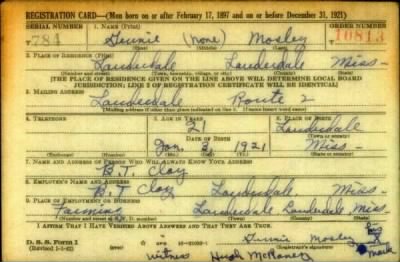 REGISTRATION CARD—(Men born on or after February 17, 1897 and on or before December 31, 1921)
SERIAL NUMBER 1. NAME (Print) ORDER NUMBER
T 784 (None) Mosley 10813
(First) (Middle) (Last)
2. PLACE OF RESIDENCE (Print)
Lauderdale Lauderdale Miss-
(Number and street) (Town, township, village, or city) (County) (State)
[THE PLACE OF RESIDENCE GIVEN ON THE LINE ABOVE WILL DETERMINE LOCAL BOARD
JURISDICTION; LINE 2 OF REGISTRATION CERTIFICATE WILL BE IDENTICAL]
3. MAILING ADDRESS
Lauderdale Route 2
[Mailing address if other than place indicated on line 2. If same insert word same]
4. TELEPHONE 5. AGE IN YEARS 6. PLACE OF BIRTH
21 Lauderdale
DATE OF BIRTH (Town or county)
Jan. 3, 1921 Miss-
(Exchange) (Number) (Mo.) (Day) (Yr.) (State or country)
7. NAME AND ADDRESS OF PERSON WHO WILL ALWAYS KNOW YOUR ADDRESS
B.T. Clay
8. EMPLOYER'S NAME AND ADDRESS
B.T. Clay Lauderdale, Miss-
9. PLACE OF EMPLOYMENT OR BUSINESS
Farming Lauderdale Lauderdale Miss
(Number and street or R. F. D. number) (Town) (County) (State)
I AFFIRM THAT I HAVE VERIFIED ABOVE ANSWERS AND THAT THEY ARE TRUE.
Mosley his
D. S. S. Form 1
(Revised 1-1-42) (over) (Registrant's signature) Mark
Witness Hugh